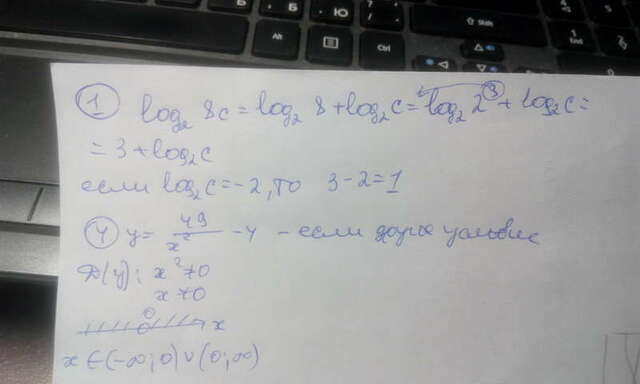 Alt
Ctrl
Shift
End
Б
Ю
1 log₂ 8c = log₂ 8 + log₂ c = log₂ 2³ + log₂ c =
= 3 + log₂ c
если log₂ c = -2, то 3-2=1
4 y = 49/x² - 4 - если другое условие
D(y): x² ≠ 0
x ≠ 0
0 x
x ∈ (-∞; 0) ∪ (0; ∞)